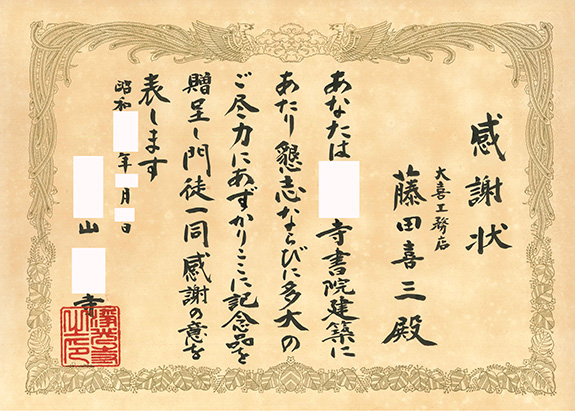 感謝状
大喜工務店
藤田喜三殿
あなたは
寺書院建築に
あたり懇志ならびに多大の
ご尽力にあずかりここに記念品を
贈呈し門徒一同感謝の意を
表します
昭和 年 月 日
山 寺